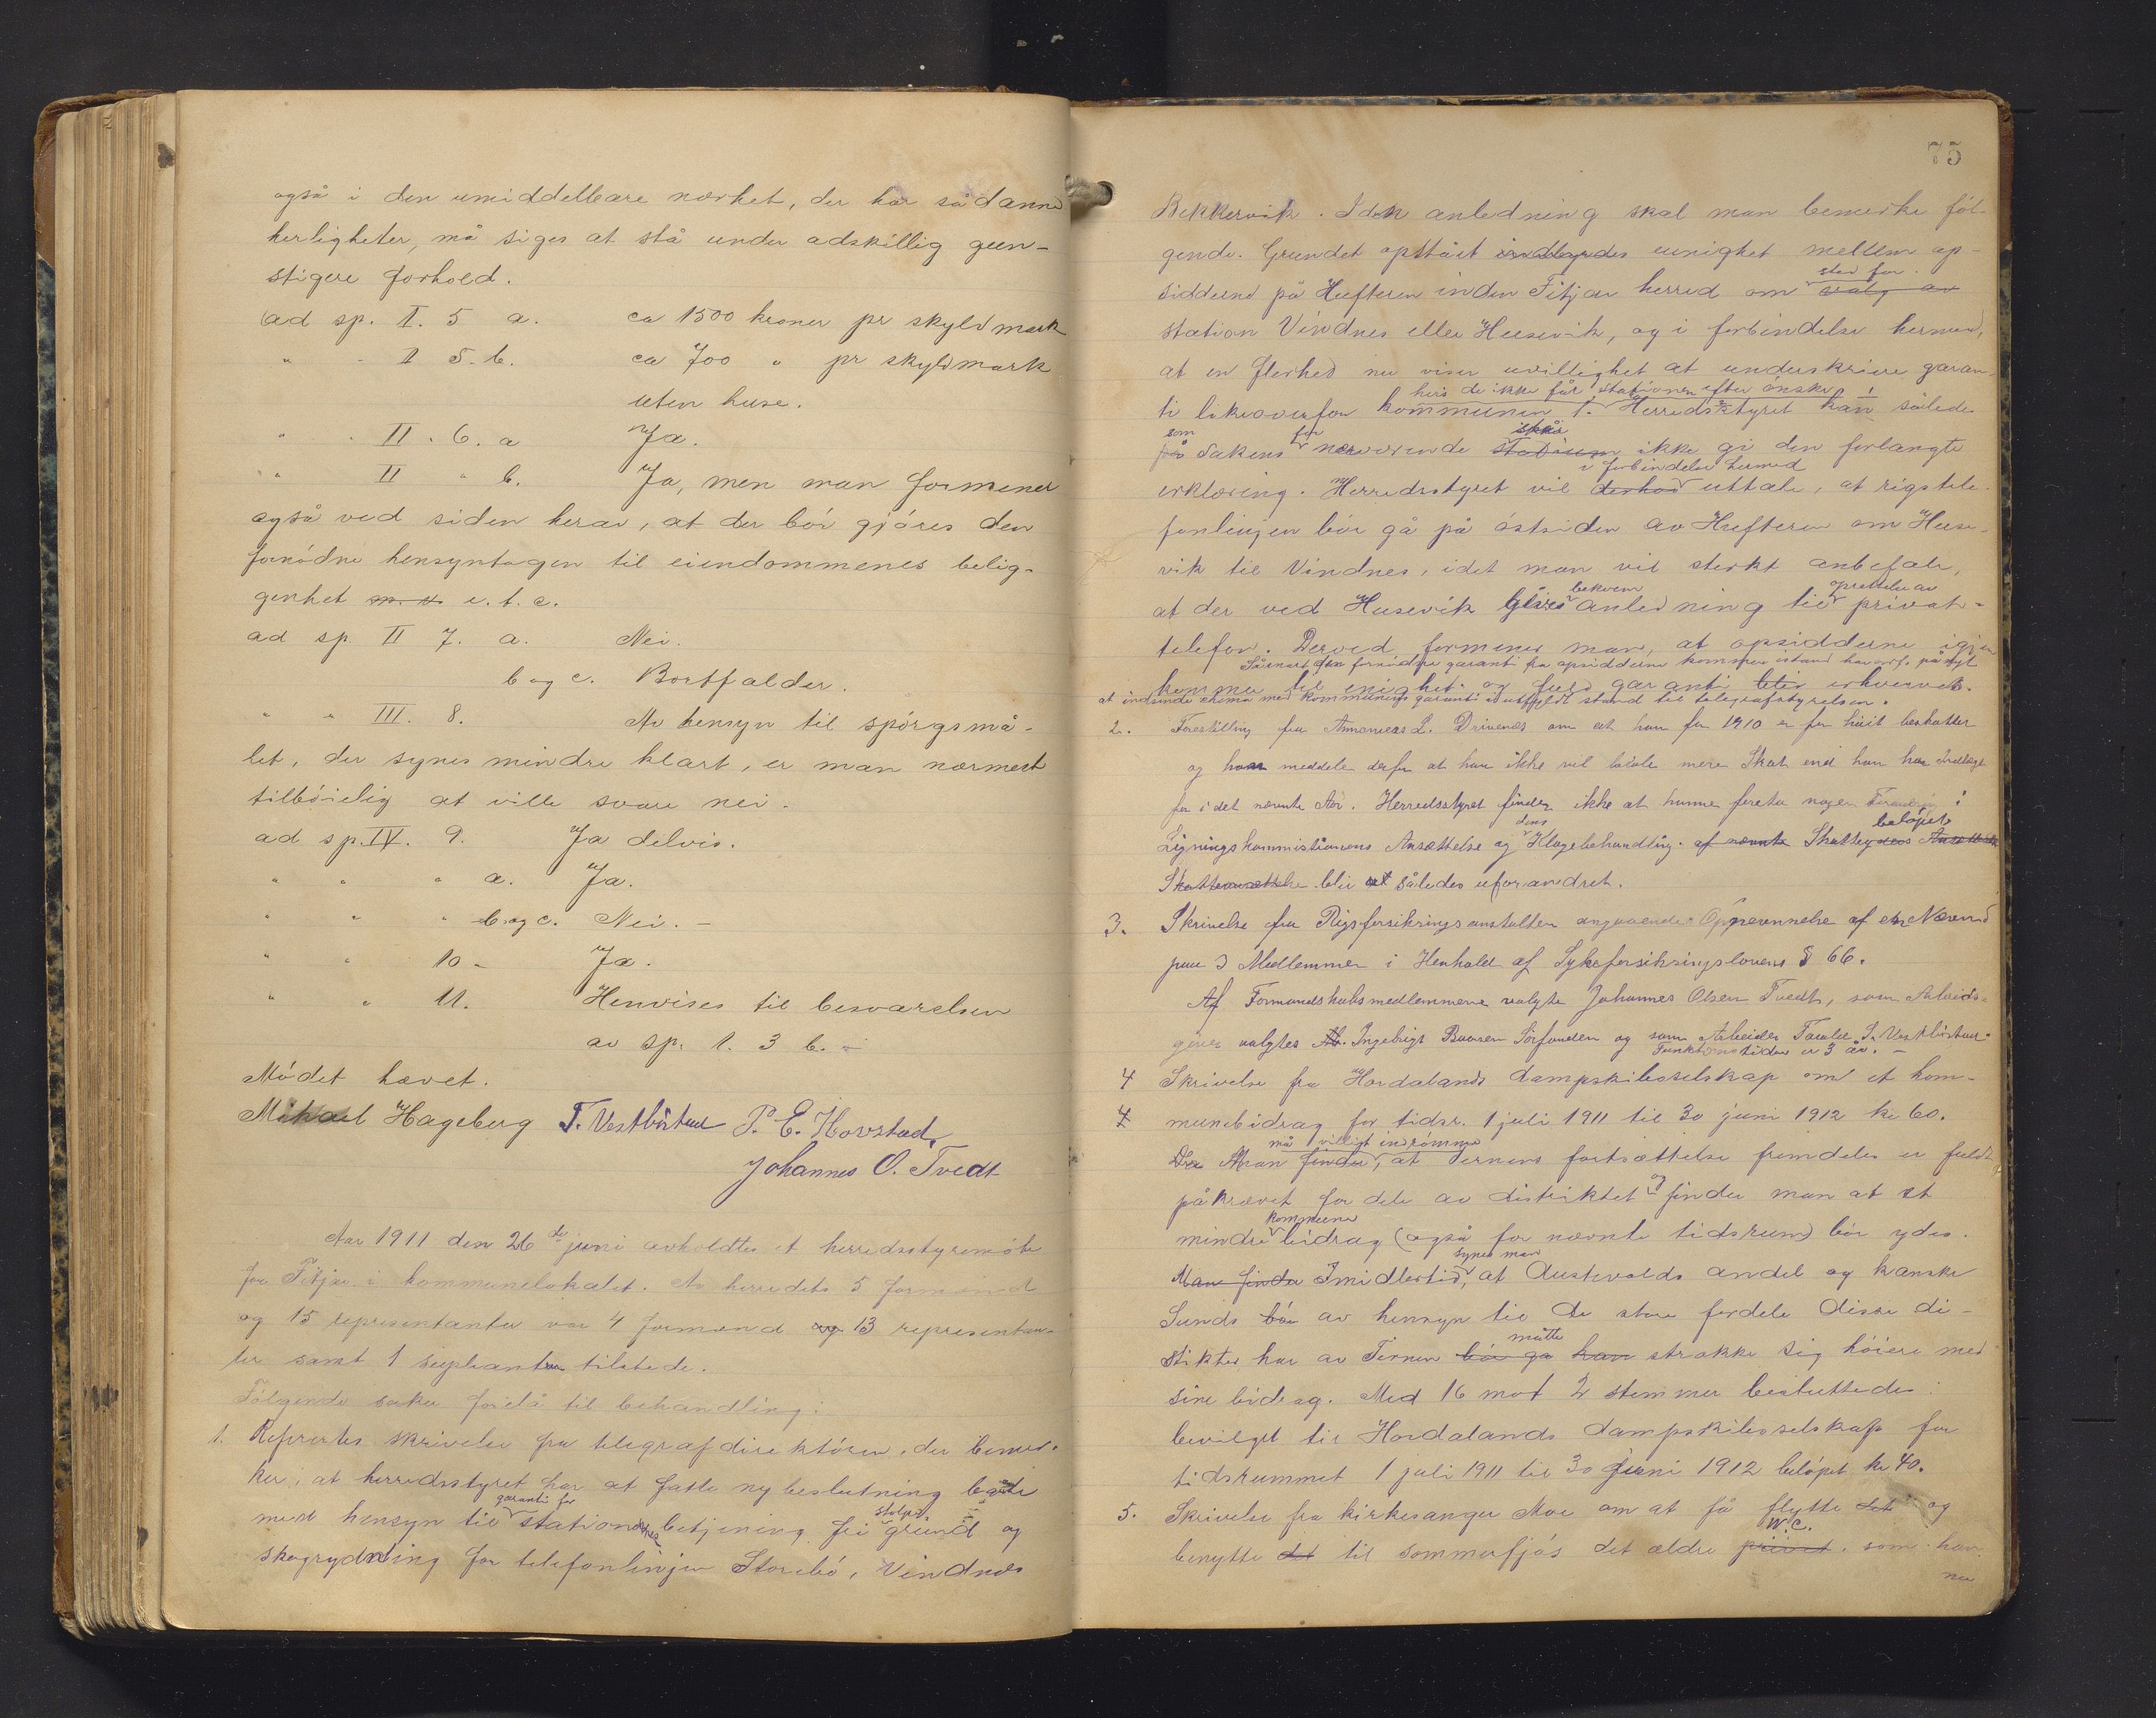 også i den umiddelbare nærhet, der har sådanne
herligheter, må siges at stå under adskillig gun-
stigere forhold.
ad sp. I. 5 a. ca 1500 kroner pr skyldmark
" - I 5. b. ca 700 " pr skyldmark
uten huse.
" . II. 6. a Ja.
" II " b. Ja, men man formener
også ved siden herav, at der bör gjöres den
fornödne hensyntagen til eiendommenes belig-
genhet e. t. c.
ad sp. II 7. a. Nei.
b og c. Bortfalder.
" " III. 8. Av hensyn til spörgsmå-
let, der synes mindre klart, er man nærmest
tilböielig at ville svare nei.
ad sp. IV. 9. Ja delvis.
" " " a. Ja.
" " " b. og c. Nei. -
" " 10 - Ja.
" " 11. Henvises til besvarelsen
av sp. 1. 3 b. -
Mödet hævet.
Mikael Hageberg T. Vestböstad P. E. Hovstad.
Johannes O. Tvedt
Aar 1911 den 26de juni avholdtes et herredsstyremöte
for Fitjar i kommunelokalet. Av herredets 5 formænd
og 15 representanter var 4 formænd og 13 representan-
ter samt 1 supleant tilstede.
Fölgende saker forelå til behandling:
1. Refereertes skrivelse fra telegrafdirektören, der bemer-
ker, at herredsstyret har at fatte ny beslutning både
garanti for stolper,
med hensyn til stationernes betjening fri grund og
skogrydning for telefonlinjen Storebö, Vindnes
75
Bekkervik. I den anledning skal man bemerke föl-
gende. Grundet opstået indbyrdes uenighet mellem op-
sted for
sidderne på Huftaren inden Fitjar herred om valg av
station Vindnes eller Husevik, og i forbindelse hermed,
at en flerhed nu viser uvillighet at underskrive garan-
hvis de ikke får stationen efter önske
ti likeoverfor kommunen. Herredsstyret kan således
som for står
på sakens nærværende stadium ikke gi den forlangte
i forbindelse hermed
erklæring. Herredsstyret vil derhos uttale, at rigstele-
fonlinjen bör gå på östsiden av Huftaren om Huse-
vik til Vindnes, idet man vil sterkt anbefale,
bekvem oprettelse av
at der ved Husevik gives anledning til privat-
telefon. Derved formener man, at opsidderne igjen
Såsnart den fornödne garanti fra opsidderne kommer istand har ordf. påny
kommer til enighet og fuld garanti blir erhvervet.
at indsende skema med kommunens garanti i utfyldt stand til telegrafstyrelsen.
2. Forestilling fra Annanias L. Drivenes om at han for 1910 er for höit beskattet
og han meddeler derfor at han ikke vil betale mere Skat end han har indbetalt
for i det nævnte Aar. Herredsstyret finder ikke at kunne foreta nogen Forandring i
dens beløpet
Ligningskommissionens Ansættelse og Klagebehandling. af nævnte Skatteyders
Skatteansættelse blir således uforandret.
3. Skrivelse fra Rigsforsikringsanstalten angaaende Opnevnnelse af en Nævnd
paa 3 Medlemmer i Henhold af Sykeforsikringslovens § 66.
Af Formandskabsmedlemmerne valgte Johannes Olsen Tvedt, som Arbeids-
giver valgtes Ingebrigt Baarsen Sörfonden og som Arbeider Tarald S. Vestböstad.
Funktionstiden er 3 år. -
4 Skrivelse fra Hordalands dampskibsselskap om et kom-
4 munebidrag for tidsr. 1 juli 1911 til 30 juni 1912 kr 60.
må villigt indrömme
Man finder, at Ternens fortsættelse fremdeles er fuldt
og
påkrævet for dele av distriktet finder man at et
kommune
mindre bidrag (også for nævnte tidsrum) bör ydes.
synes man
Man finder Imidlertid, at Austevolds andel og kanske
Sunds bör av hensyn til de store fordele disse di-
måtte
strikter har av Ternen bör ga kan strække sig höiere med
sine bidrag. Med 16 mot 2 stemmer besluttedes
bevilget til Hordalands dampskibsselskap for
tidsrummet 1 juli 1911 til 30 juni 1912 beløpet kr. 40.
5. Skrivelse fra kirkesanger Moe om at få flytte det og
W.C.
benytte det til sommerfjös det ældre privet, som han
nu